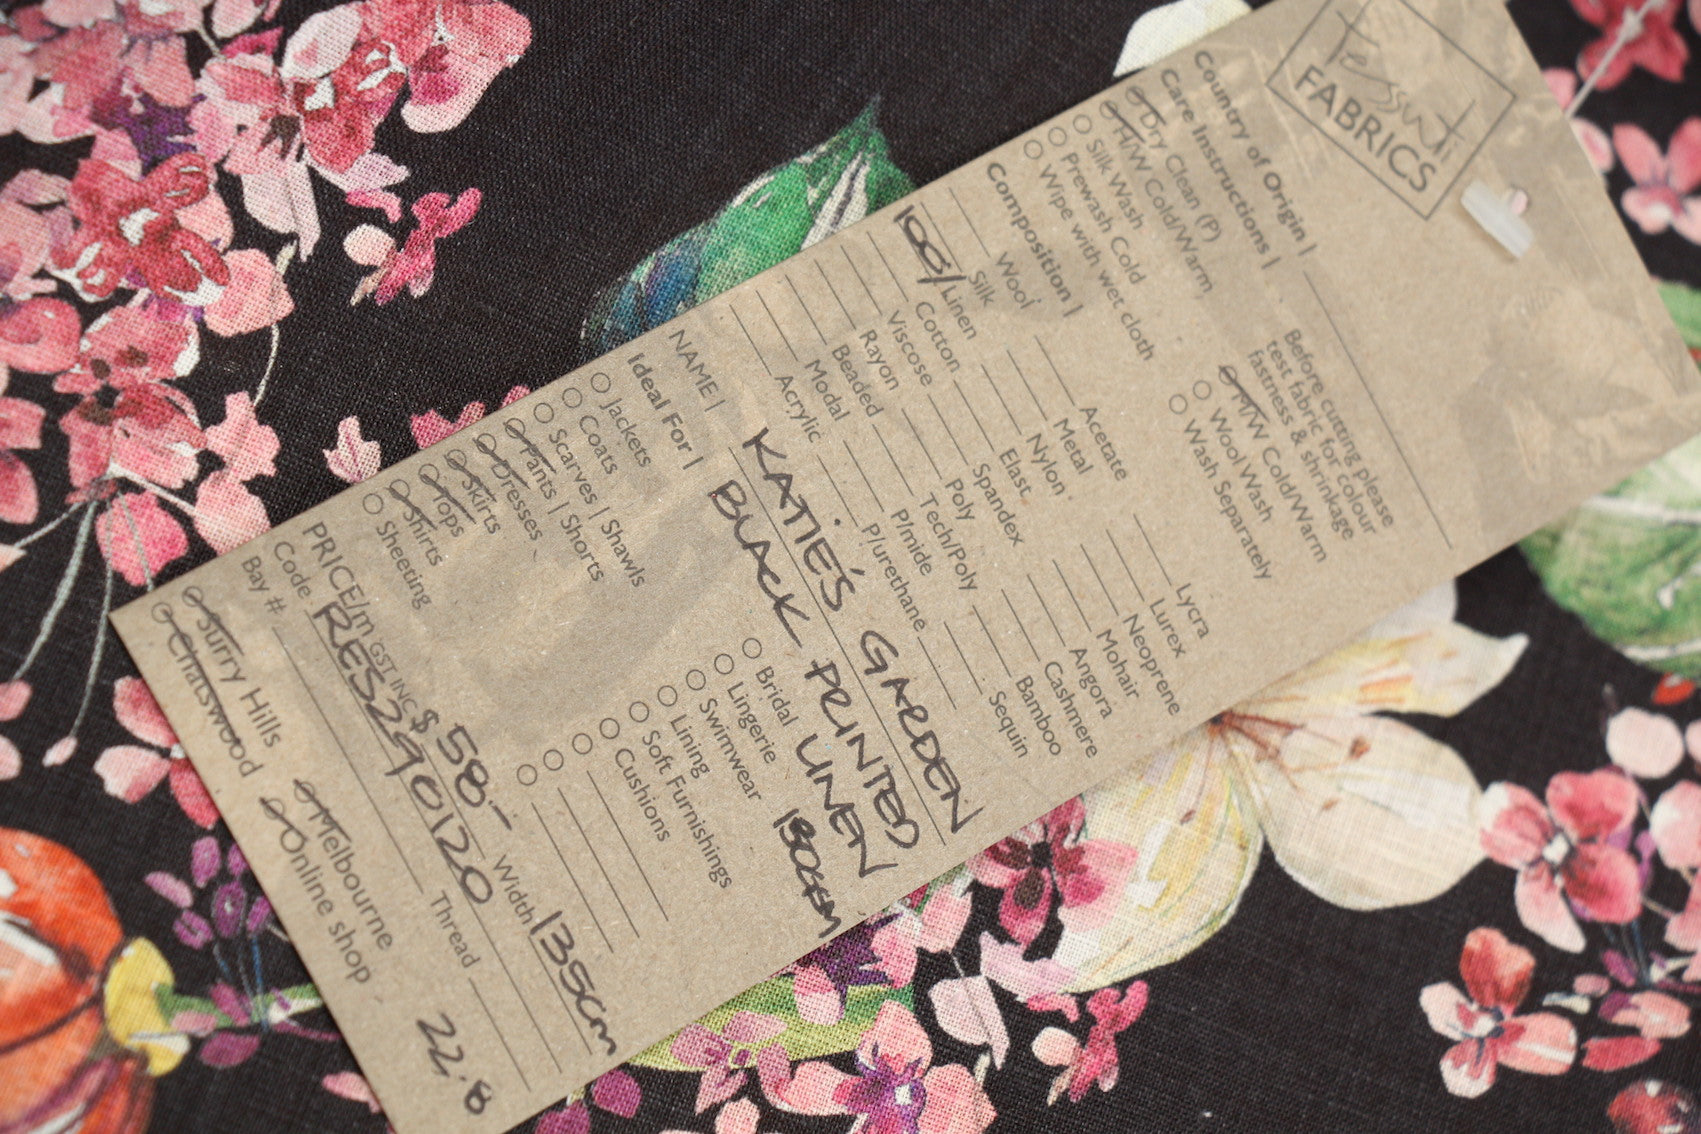 Tessuti
FABRICS
Country of Origin |
Care Instructions |
Dry Clean (P)
H/W Cold/Warm
Silk Wash
Prewash Cold
Wipe with wet cloth
Before cutting please
test fabric for colour
fastness & shrinkage
M/W Cold/Warm
Wool Wash
Wash Separately
Composition |
Wool
Silk
100/ Linen
Cotton
Viscose
Rayon
Beaded
Modal
Acrylic
Acetate
Metal
Nylon
Elast
Spandex
Poly
Tech/Poly
P/mide
P/urethane
Lycra
Lurex
Neoprene
Mohair
Angora
Cashmere
Bamboo
Sequin
NAME | KATIE'S GARDEN
BLACK PRINTED LINEN
Ideal For |
Jackets
Coats
Scarves | Shawls
Pants | Shorts
Dresses
Skirts
Tops
Shirts
Sheeting
Bridal
Lingerie
Swimwear
Lining
Soft Furnishings
Cushions
PRICE/m GST INC $ 58.- Width 135cm
Code RES290120
Bay #
Thread
Surry Hills
Chatswood
Melbourne
Online shop
22.8